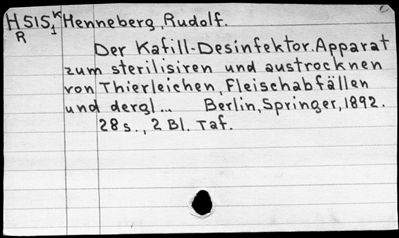 H515K Henneberg, Rudolf.
R 1
Der Kafill-Desinfektor. Apparat
zum sterilisiren und austrocknen
von Thierleichen, Fleischabfällen
und dergl... Berlin, Springer, 1892.
28 s., 2 Bl. Taf.